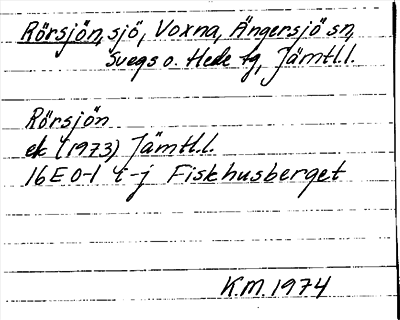 Rörsjön, sjö, Voxna, Ängersjö sn,
Svegs o. Hede tg, Jämtl.l.
Rörsjön
ek (1973) Jämtl.l.
16E 0-1 i-j Fiskhusberget
KM. 1974